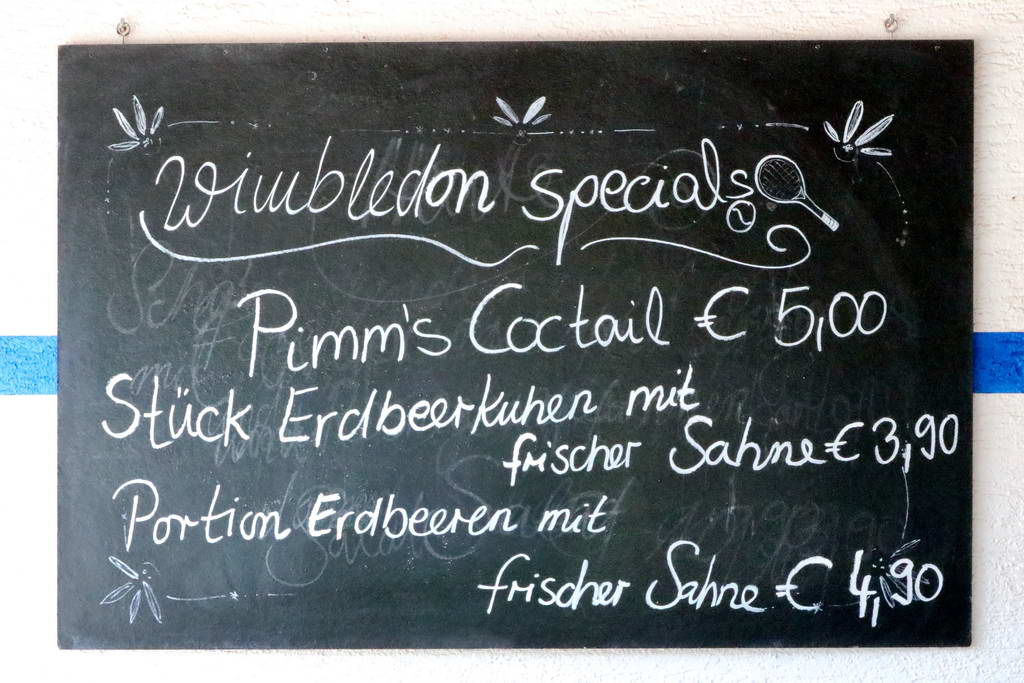 Wimbledon Specials
Pimm's Coctail € 5,00
Stück Erdbeerkuhen mit
frischer Sahne € 3,90
Portion Erdbeeren mit
frischer Sahne € 4,90